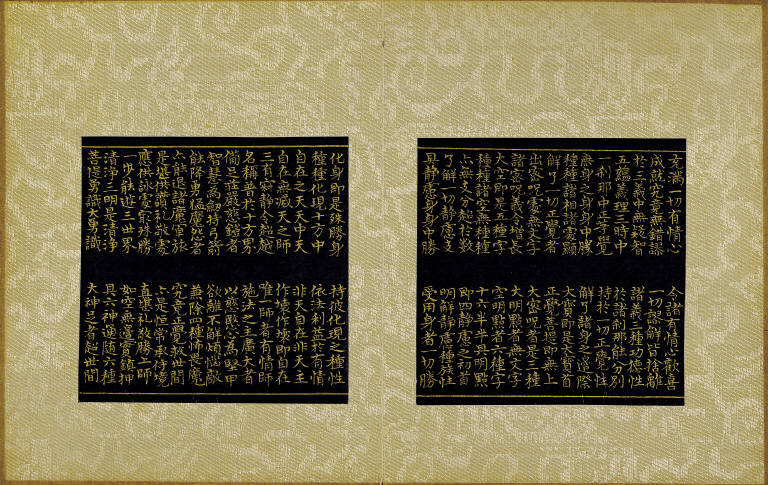 充滿一切有情心
令諸有情心歡喜
成就究竟無錯謬
一切謬解皆捨離
於三義中無疑智
諸義三種功德性
五蘊義理三時中
於諸剎那能分別
一剎那中正等覺
持於一切正覺性
無身之身身中勝
解了諸身之邊際
種種諸相諸處顯
大寶即是大寶首
解了一切正覺者
正覺菩提即無上
出密咒處無文字
大密咒者是三種
諸密咒義令增長
大明點者無文字
大空即是五種字
空明點者六種字
種種諸空無種種
十六半半具明點
亦無支分超於數
即四靜慮之初首
了解一切靜慮支
明解靜慮種族性
具靜慮身身中勝
受用身者一切勝
化身即是殊勝身
持彼化現之種性
種種化現十方中
依法利益於有情
自在之天天中天
非天自在非天主
自在無滅天之師
作壞作壞即自在
三有寂靜令超越
唯一師者有情師
名稱普於十方界
施法之主廣大者
備足莊嚴慈鎧者
以慈愍心為堅甲
智慧為劍持弓箭
欲離不解煩惱敵
能降勇猛魔怨者
兼除四種怖畏魔
亦能退諸魔軍旅
究竟正覺救世間
是堪供讚禮敬處
亦是恒常承侍境
應供詠處最殊勝
真堪礼敬勝上師
一步能遊三世界
如空無邊實鎮押
清淨三明是清淨
具六神通隨六種
菩提勇識大勇識
大神足者超世間